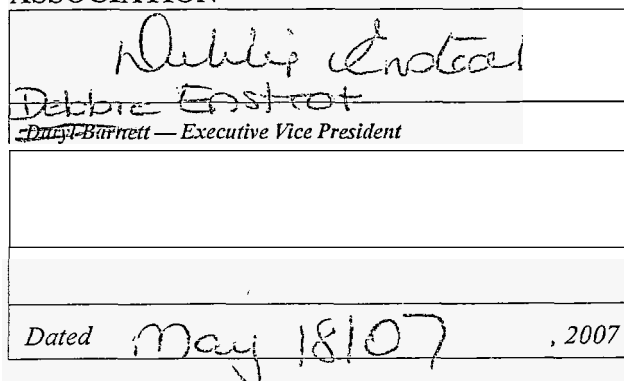 ASSOCIATION
Debbie Enstrot
Daryl Barnett — Executive Vice President
Dated May 18/07 , 2007